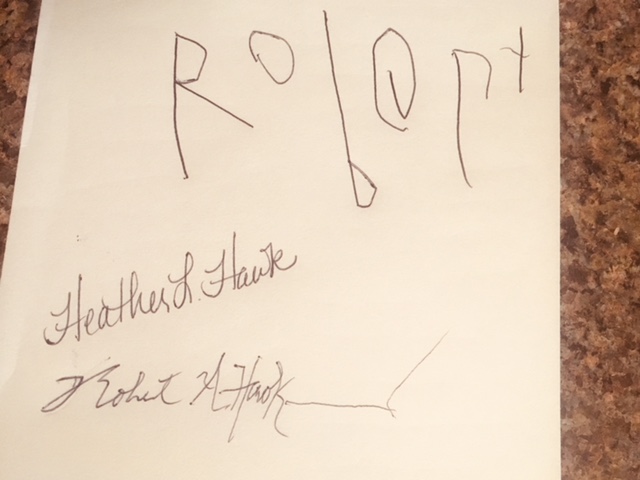 Robert
Heather L. Hawk
Robert A. Hawk